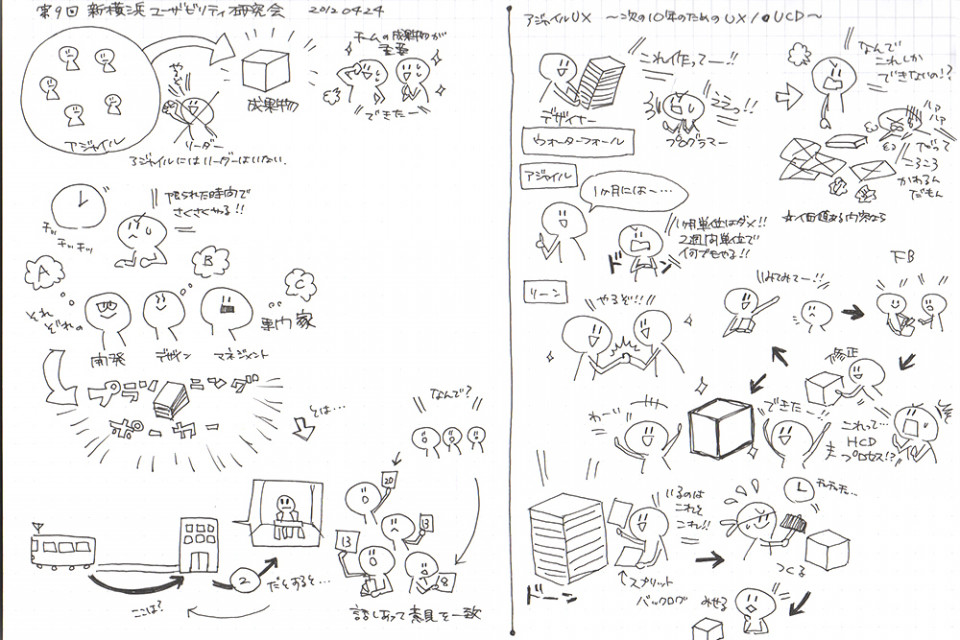 第9回 新横浜ユーザビリティ研究会 2012 04 24
チームの成果物が
重要
やるぞ
成果物
できたー
アジャイル
リーダー
アジャイルにはリーダーはいない.
限られた時間で
さくさくやる!!
チッ
チッチッ
A
B
C
それ
ぞれの
専門家
開発
デザイン
マネジメント
とは…
なんで?
20
13
13
8
2
だとすると…
ここは?
話しあって意見を一致
アジャイルUX ～次の10年のためのUX/UCD～
これ作ってー!!
デザイナー
プログラマー
ウォーターフォール
なんで
これしか
できないの!?
ハァ
ハァ
だって
ころころ
かわるん
だもん
アジャイル
1ヶ月には〜…
1ヶ月単位はダメ!!
2週間単位で
何でもやる!!
ドーン
リーン
やるぞ!!
みてみてー!!
FB
修正
できたー!!
わーい
これって…
HCD
プロセス!?
いるのは
これと
これ!!
スプリット
バックログ
ドーン
チッチッチッ…
つくる
みせる